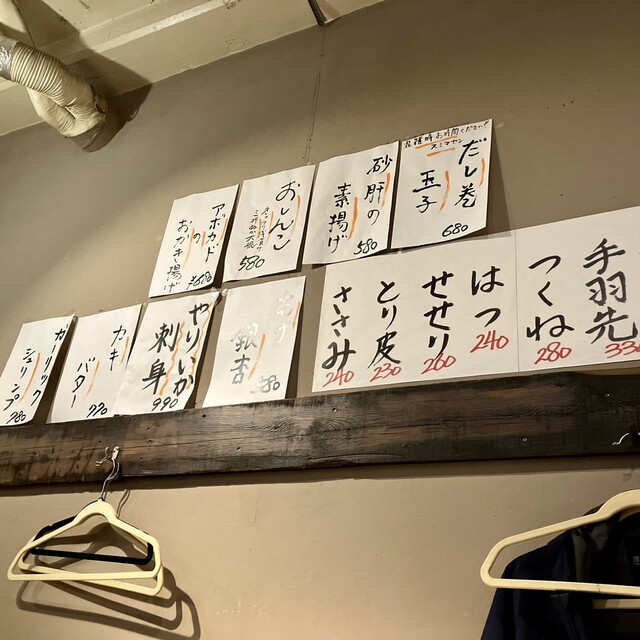 混雑時お時間ください!
スミマセン
だし巻
玉子
680
砂肝の
素揚げ
580
おしんこ
580
アボカド
の
おかき揚げ
¥680
手羽先
330
つくね
280
はつ
240
せせり
260
とり皮
230
ささみ
240
銀杏
380
やりいか
刺身
990
カキ
バター
770
ガーリック
シュリンプ
780